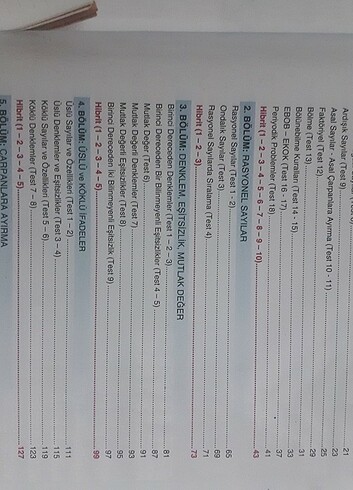 Ardışık Sayılar (Test 9) 21
Asal Sayılar - Asal Çarpanlara Ayırma (Test 10 - 11) 23
Faktöriyel (Test 12) 25
Bölme (Test 13) 29
Bölünebilme Kuralları (Test 14 - 15) 31
EBOB – EKOK (Test 16 - 17) 33
Periyodik Problemler (Test 18) 37
41
Hibrit (1 – 2 – 3 – 4 – 5 – 6 – 7 – 8 – 9 – 10) 43
2. BÖLÜM: RASYONEL SAYILAR
Rasyonel Sayılar (Test 1 - 2) 65
Ondalık Sayılar (Test 3) 69
Rasyonel Sayılarda Sıralama (Test 4) 71
Hibrit (1 – 2 – 3) 73
3. BÖLÜM: DENKLEM, EŞİTSİZLİK, MUTLAK DEĞER
Birinci Dereceden Denklemler (Test 1 – 2 – 3) 81
Birinci Dereceden Bir Bilinmeyenli Eşitsizlikler (Test 4 – 5) 87
Mutlak Değer (Test 6) 91
Mutlak Değerli Denklemler (Test 7) 93
Mutlak Değerli Eşitsizlikler (Test 8) 95
Birinci Dereceden İki Bilinmeyenli Eşitsizlik (Test 9) 97
Hibrit (1 – 2 – 3 – 4 – 5) 99
4. BÖLÜM: ÜSLÜ VE KÖKLÜ İFADELER
Üslü Sayılar ve Özellikleri (Test 1 – 2) 111
Üslü Denklemler ve Eşitsizlikler (Test 3 – 4) 115
Köklü Sayılar ve Özellikleri (Test 5 – 6) 119
Köklü Denklemler (Test 7 – 8) 123
Hibrit (1 – 2 – 3 – 4 – 5) 127
5. BÖLÜM: ÇARPANLARA AYIRMA